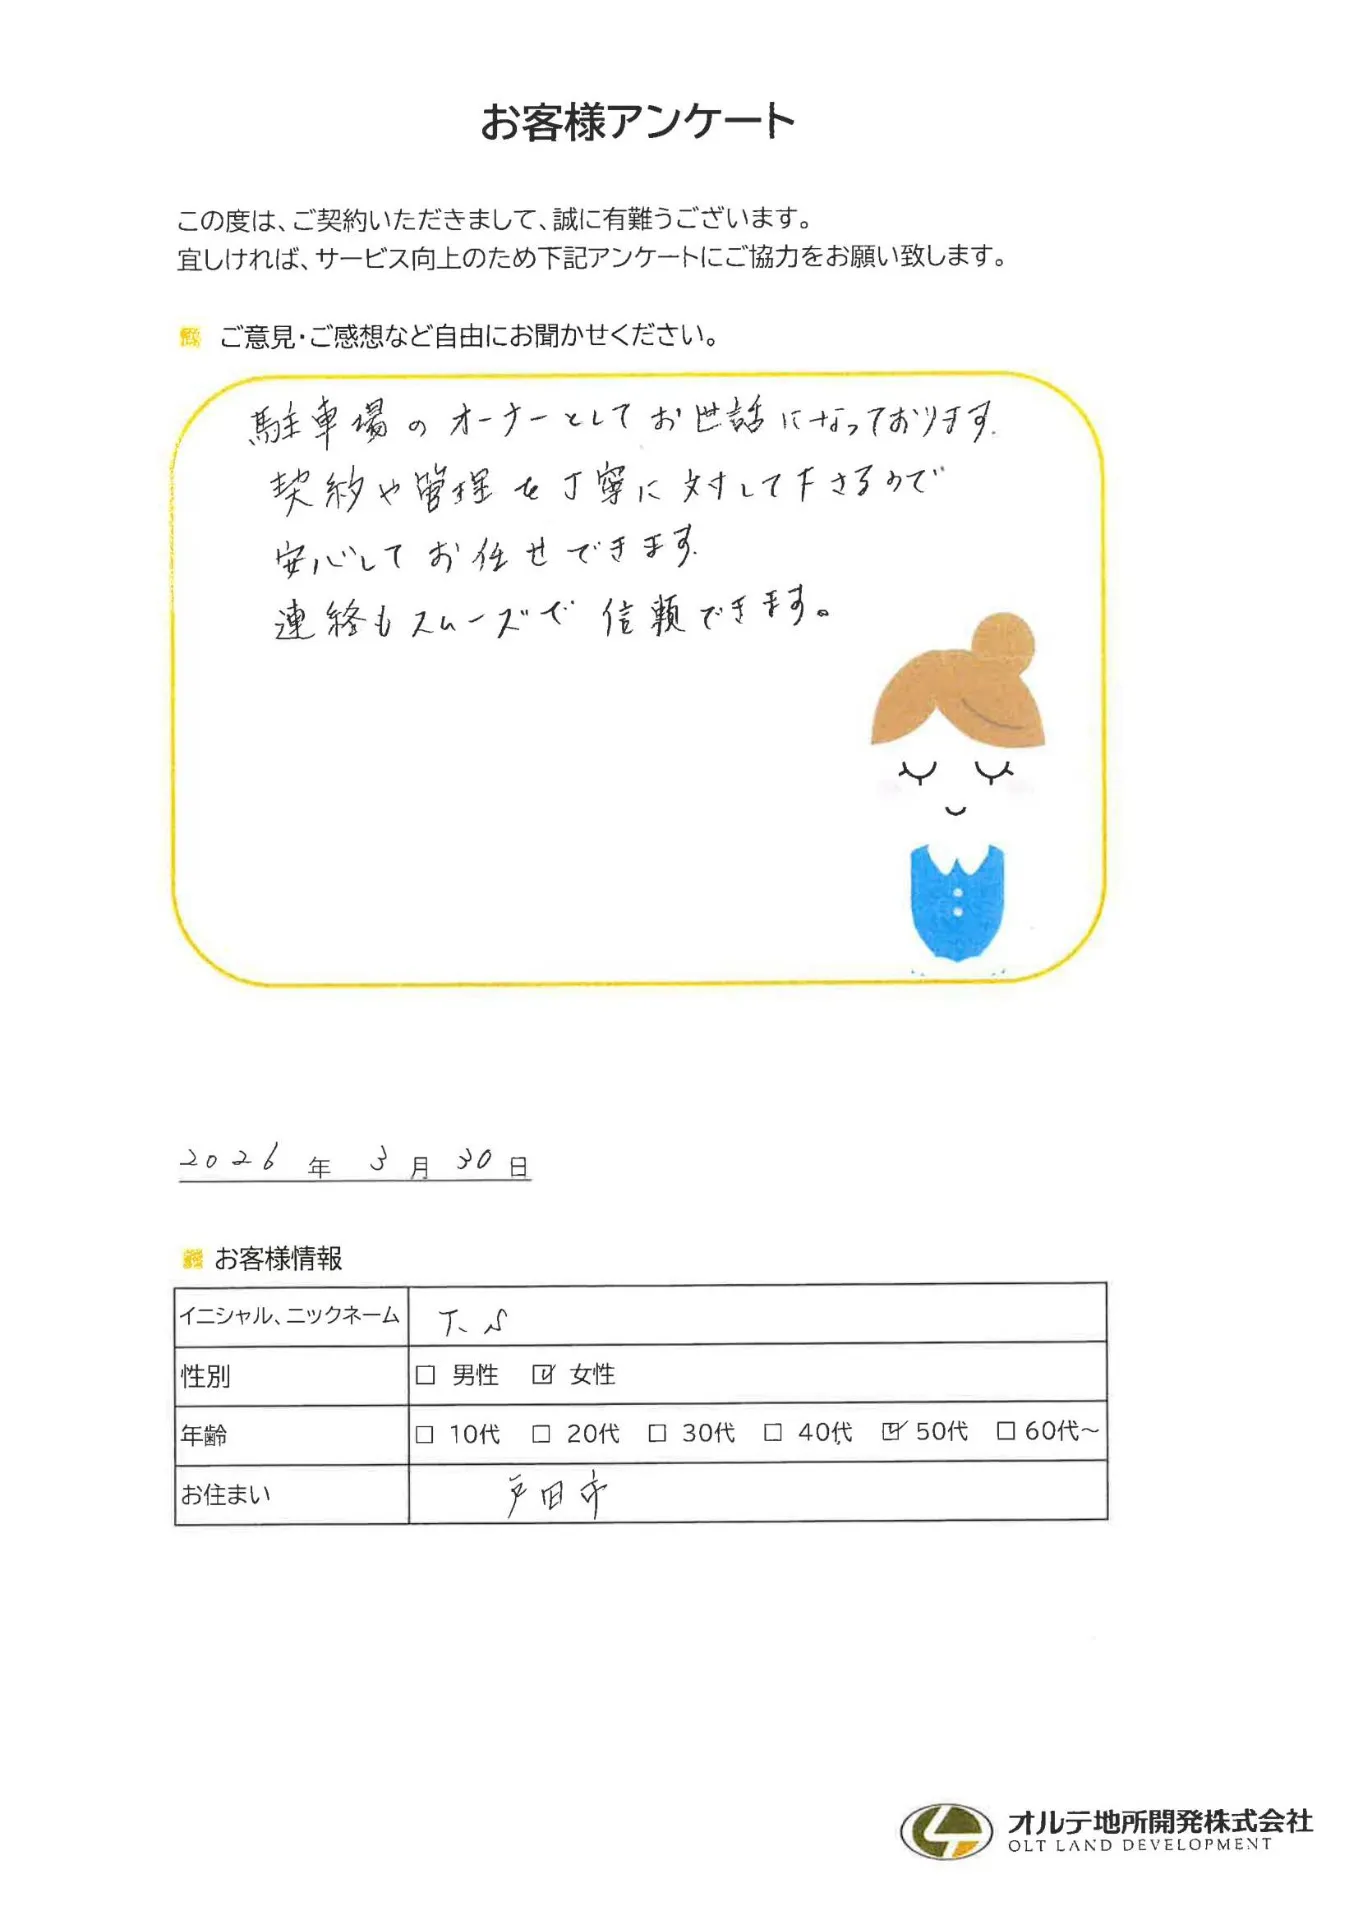 お客様アンケート
この度は、ご契約いただきまして、誠に有難うございます。
宜しければ、サービス向上のため下記アンケートにご協力をお願い致します。
ご意見・ご感想など自由にお聞かせください。
駐車場のオーナーとしてお世話になっております.
契約や管理を丁寧に対して下さるので
安心してお任せできます.
連絡もスムーズで信頼できます。
2026 年 3 月 30 日
お客様情報
イニシャル、ニックネーム T.S
性別 □ 男性 ☑ 女性
年齢 □ 10代 □ 20代 □ 30代 □ 40代 ☑ 50代 □ 60代～
お住まい 戸田市
オルテ地所開発株式会社
OLT LAND DEVELOPMENT